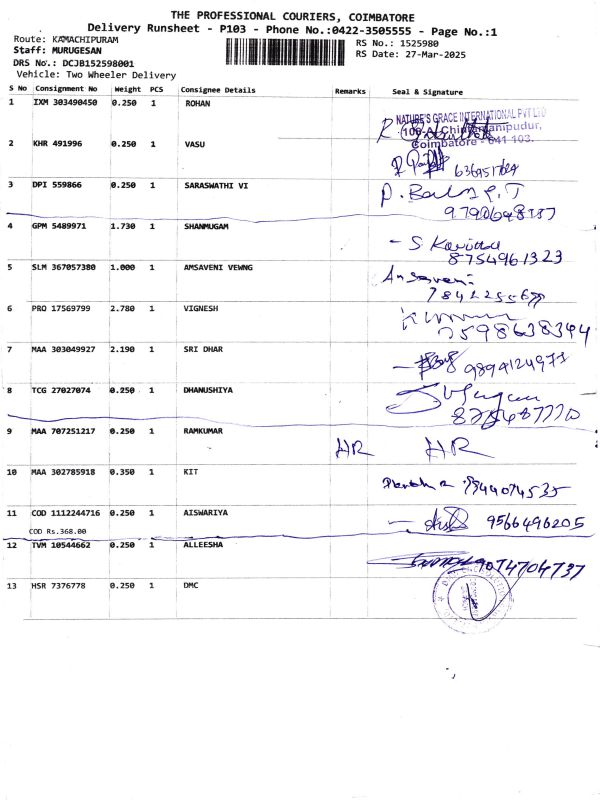 THE PROFESSIONAL COURIERS, COIMBATORE
Delivery Runsheet - P103 - Phone No.:0422-3505555 - Page No.:1
Route: KAMACHIPURAM
RS No.: 1525980
Staff: MURUGESAN
RS Date: 27-Mar-2025
DRS No.: DCJB152598001
Vehicle: Two Wheeler Delivery
S No Consignment No Weight PCS Consignee Details Remarks Seal & Signature
1 IXM 303490450 0.250 1 ROHAN
NATURE'S GRACE INTERNATIONAL PVT LTD
Coimbatore - 641 103.
2 KHR 491996 0.250 1 VASU
3 DPI 559866 0.250 1 SARASWATHI VI
4 GPM 5489971 1.730 1 SHANMUGAM
8754961323
5 SLM 367057380 1.000 1 AMSAVENI VEWNG
6 PRO 17569799 2.780 1 VIGNESH
7598638344
7 MAA 303049927 2.190 1 SRI DHAR
8 TCG 27027074 0.250 1 DHANUSHIYA
9 MAA 707251217 0.250 1 RAMKUMAR HR HR
10 MAA 302785918 0.350 1 KIT
11 COD 1112244716 0.250 1 AISWARIYA 9566496205
COD Rs.368.00
12 TVM 10544662 0.250 1 ALLEESHA
13 HSR 7376778 0.250 1 DMC